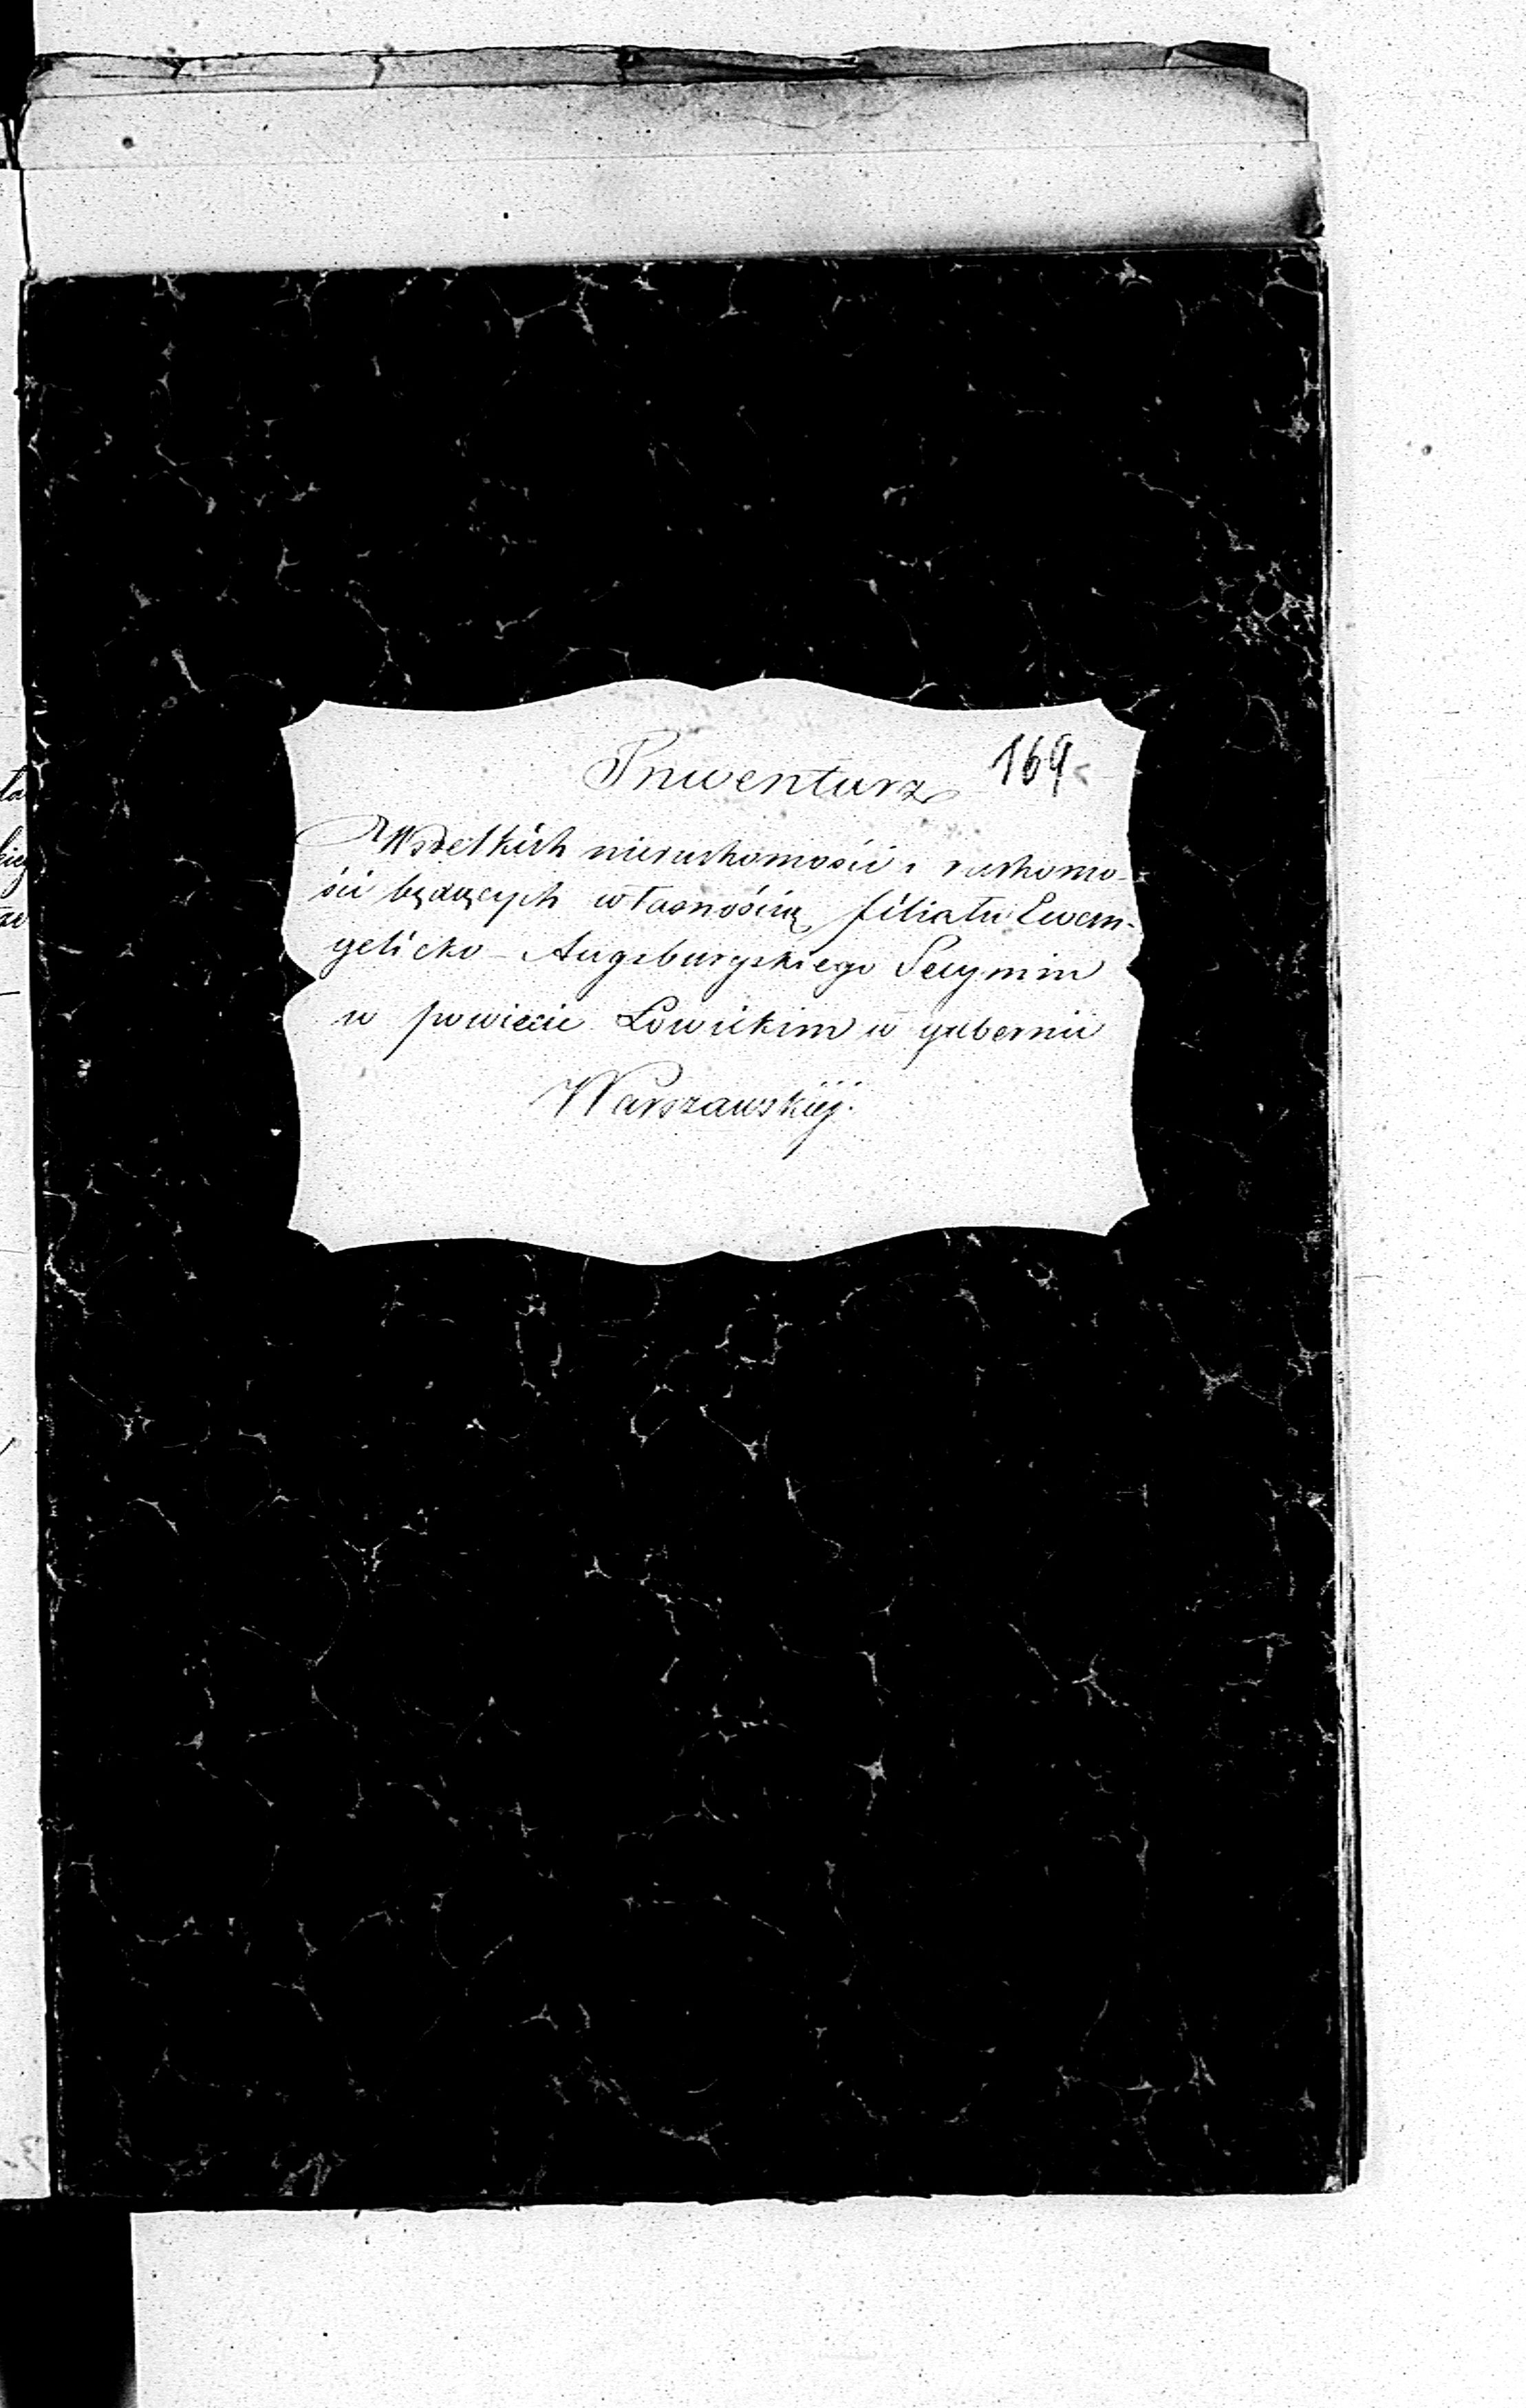 Inwentarz 169
Wszelkich nieruchomości i ruchomo-
ści będących własnością filiału Ewan-
gelicko - Augsburgskiego Secymin
w powiecie Łowickim w gubernii
Warszawskiéj.